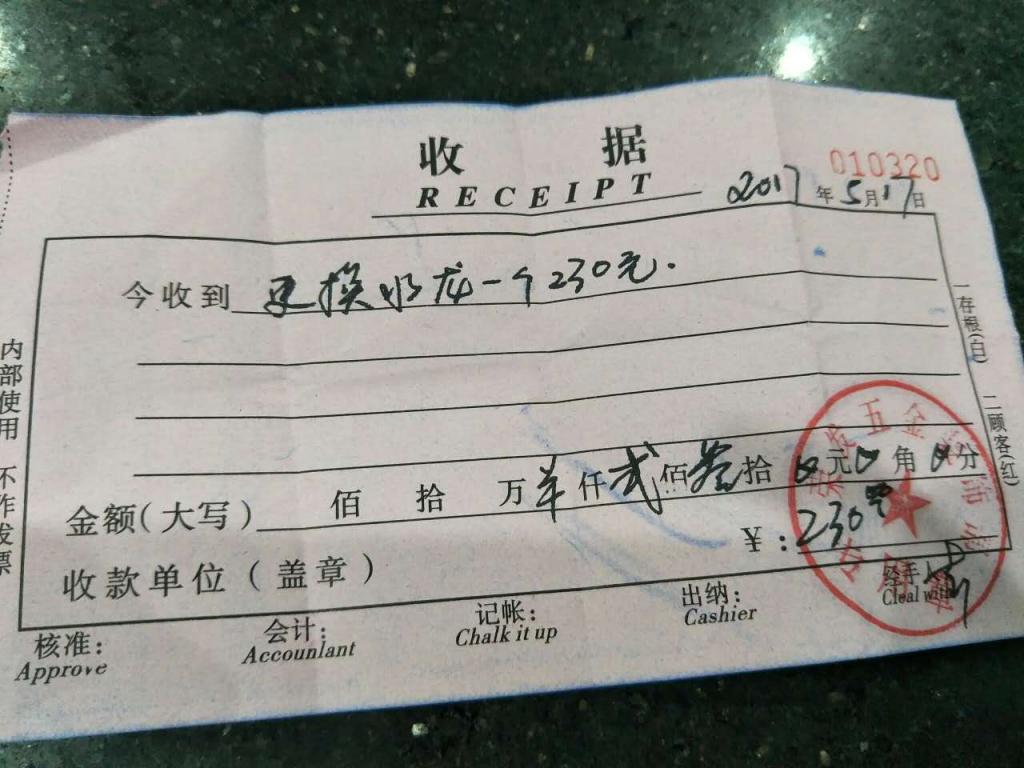 收据
010320
RECEIPT
2017年5月17日
今收到 更换水龙一个230元.
金额(大写) 佰 拾 万 羊 仟 贰 佰 叁 拾 0 元 0 角 0 分
¥:230元
收款单位(盖章)
经手人
Cleal with
核准:
Approve
会计:
Accounlant
记帐:
Chalk it up
出纳:
Cashier
内部使用 不作发票
一存根(白)
二顾客(红)
五金